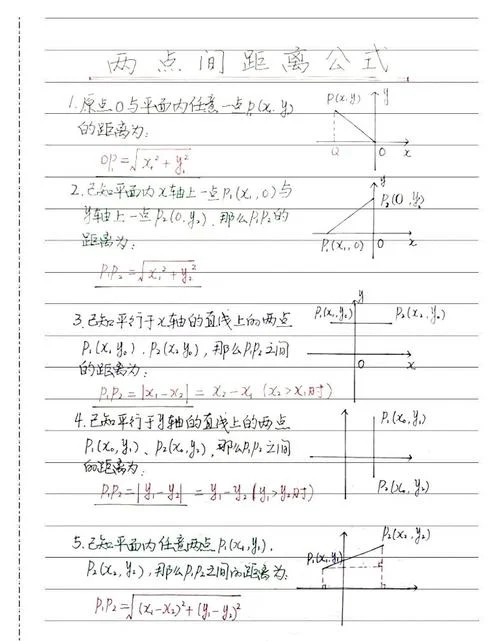 两点间距离公式
1.原点O与平面内任意一点P(x,y)
的距离为:
OP=√x₁²+y₁²
P(x,y)
y
Q
O
x
2.已知平面内x轴上一点P₁(x₁,0)与
y轴上一点P₂(0,y₂),那么P₁P₂的
距离为:
P₁P₂=√x₁²+y₂²
y
P₂(0,y₂)
P₁(x₁,0)
O
x
3.已知平行于x轴的直线上的两点
P₁(x₁,y₀),P₂(x₂,y₀),那么P₁P₂之间
的距离为:
P₁P₂=|x₁-x₂|=x₂-x₁(x₂>x₁时)
y
P₂(x₂,y₀)
O
x
4.已知平行于y轴的直线上的两点
P₁(x₀,y₁)、P₂(x₀,y₂),那么P₁P₂之间
的距离为:
P₁P₂=|y₁-y₂|=y₁-y₂(y₁>y₂时)
P₁(x₀,y₁)
P₂(x₀,y₂)
5.已知平面内任意两点P₁(x₁,y₁),
P₂(x₂,y₂),那么P₁P₂之间的距离为:
P₁P₂=√(x₁-x₂)²+(y₁-y₂)²
P₂(x₂,y₂)
P₁(x₁,y₁)